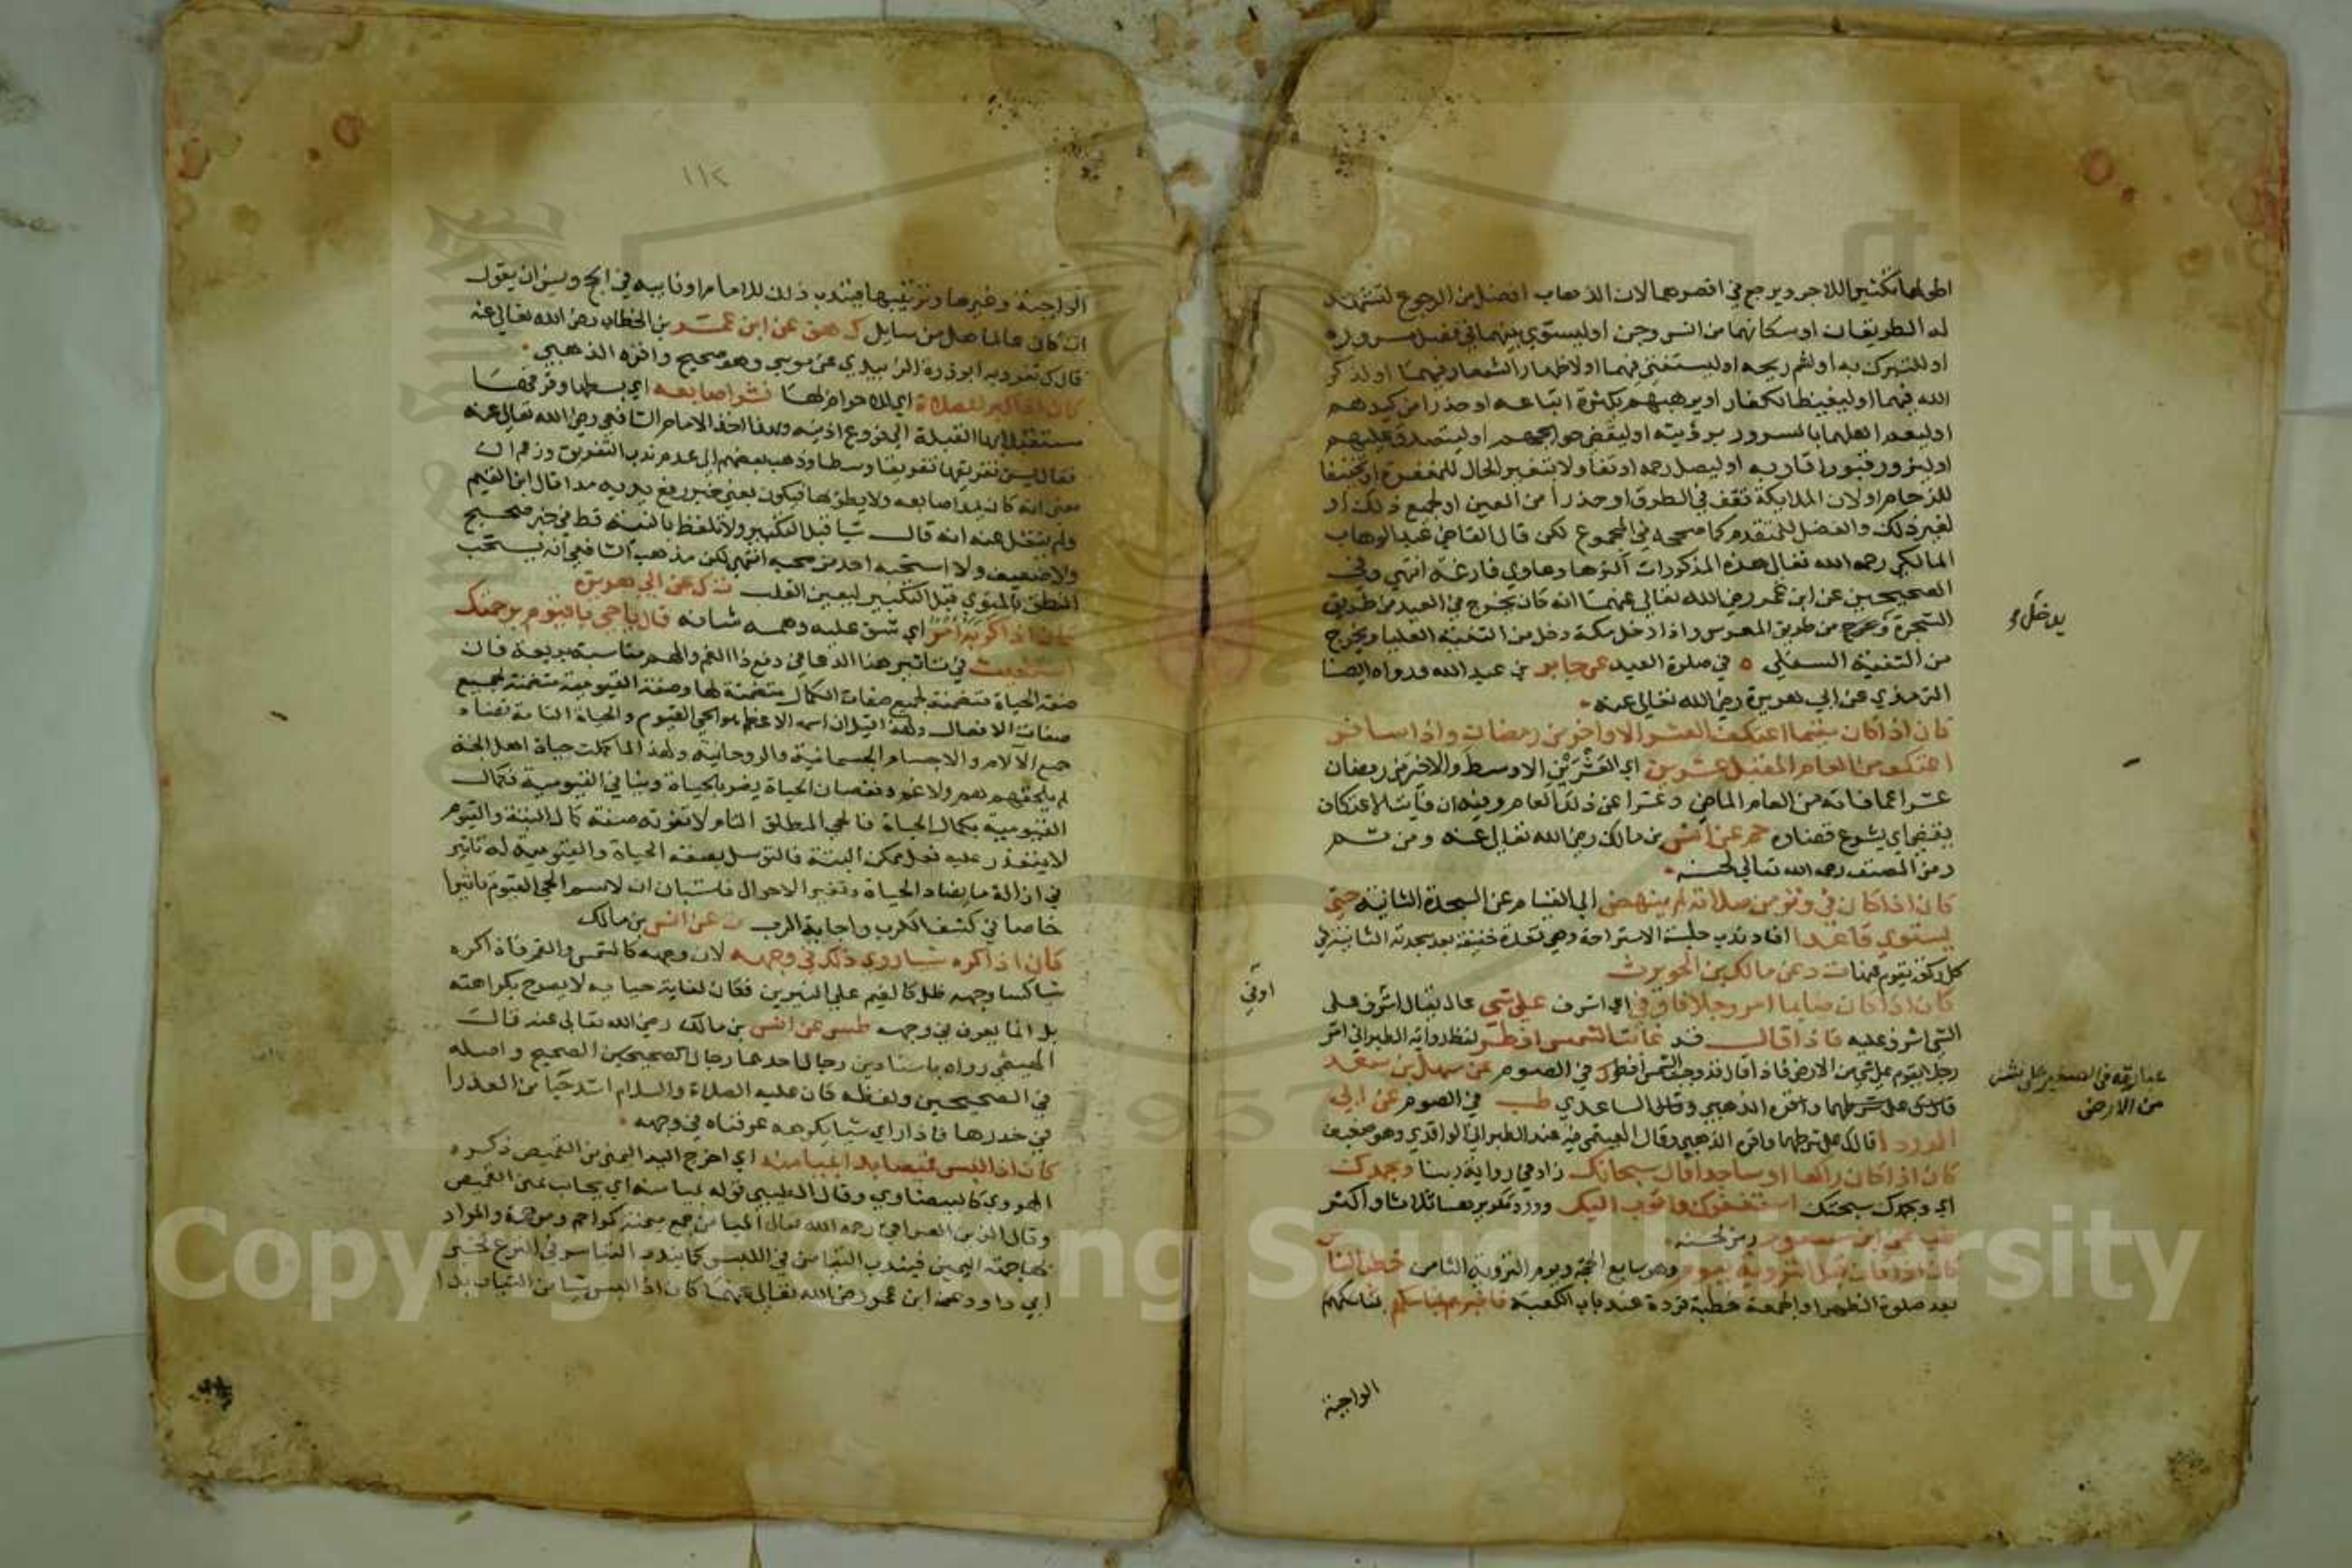 اطولهما تكثيرا للاجر ويرجع في اقصرهما لان الذهاب افضل من الرجوع لتشهد
له الطريقان او سكانهما من انس وجن او ليستوي بينهما في فضل مروره
او للتبرك به او لشم ريحه او ليستفتي فيهما او لاظهار الشعار فيهما او لذكر
الله فيهما او ليغيظ الكفار او يرهبهم بكثرة اتباعه او حذرا من كيدهم
او ليعم اهلهما بالسرور برؤيته او ليقضي حوائجهم او ليتصدق عليهم
او ليزور قبور اقاربه او ليصل رحمه او تفاولا بتغير الحال للمغفرة او تخفيفا
للزحام او لان الملايكة تقف في الطرق او حذرا من العين او لجميع ذلك او
لغير ذلك والفضل للمتقدم كما صححه في المجموع لكن قال القاضي عبد الوهاب
المالكي رحمه الله تعالى هذه المذكورات اكثرها دعاوي فارغة انتهى وفي
الصحيحين عن ابن عمر رضي الله تعالى عنهما انه كان يخرج في العيد من طريق
الشجرة ويخرج من طريق المعرس واذا دخل مكة دخل من الثنية العليا ويخرج
يدخل
من الثنية السفلى ه في صلوة العيد عن جابر بن عبد الله ورواه ايضا
الترمذي عن ابي هريرة رضي الله تعالى عنه
كان اذا كان مقيما اعتكف العشر الاواخر من رمضان واذا سافر
اعتكف من العام المقبل عشرين اي العشرين الاوسط والاخير من رمضان
عشرا عما فاته من العام الماضي وعشرا عن ذلك العام وفيه ان فايت الاعتكاف
يقضى اي يشرع قضاوه حم عن انس بن مالك رضي الله تعالى عنه ومن ثم
رمز المصنف رحمه الله تعالى لحسنه
كان اذا كان في وتر من صلاته لم ينهض الى القيام عن السجدة الثانية حتى
يستوي قاعدا افاد ندب جلسة الاستراحة وهي قعدة خفيفة بعد سجدته الثانية في
كل ركعة يقوم عنها ت د عن مالك بن الحويرث
كان اذا كان صايما امر رجلا فاوفى اي اشرف على شي عال يقال اشرف على
اوفي
الشي اشرف عليه فاذا قال قد غابت الشمس افطر لفظ رواية الطبراني امر
رجلا يقوم على شي من الارض فاذا قال قد وجبت الشمس افطر ك في الصوم عن سهل بن سعد
عبارته في الصغير على نشز
من الارض
قال ك على شرطهما واقره الذهبي وقال الساعدي طب في الصوم عن ابي
الدرداء قال ك على شرطهما واقره الذهبي وقال الهيثمي فيه عند الطبراني الواقدي وهو ضعيف
كان اذا كان راكعا او ساجدا قال سبحانك زاد في رواية ربنا وبحمدك
اي وبحمدك سبحتك استغفرك واتوب اليك وورد تكريرها ثلاثا واكثر
طب عن ابن مسعود رمز لحسنه
كان اذا كان قبل التروية بيوم وهو سابع الحجة ويوم التروية الثامن خطب الناس
بعد صلوة الظهر او الجمعة خطبة فردة عند باب الكعبة فاخبرهم بمناسكهم
الواجبة
١١٢
الواجبة وغيرها وترتيبها فيندب ذلك للامام او نايبه في الحج ويسن ان يقول
ان كان عالما هل من سايل ك هق عن ابن عمر بن الخطاب رضي الله تعالى عنه
قال ك تفرد به ابو قرة الزبيدي عن موسى وهو صحيح واقره الذهبي
كان اذا كبر للصلاة اي للاحرام لها نشر اصابعه اي بسطها وفرقها
مستقبلا بها القبلة الى فروع اذنيه وبهذا اخذ الامام الشافعي رضي الله تعالى عنه
فقال يسن تفريقها تفريقا وسطا وذهب بعضهم الى عدم ندب التفريق وزعم ان
معنى انه كان يمد اصابعه ولا يطويها فيكون بمعنى خبر رفع يديه مدا قال ابن القيم
ولم ينقل عنه انه قال شيا قبل التكبير ولا تلفظ بالنية قط في خبر صحيح
ولا ضعيف ولا استحبه احد من صحبه انتهى لكن مذهب الشافعي انه يستحب
النطق بالمنوي قبل التكبير ليعين القلب ت ك عن ابي هريرة
كان اذا كربه امر اي شق عليه واهمه شانه قال يا حي يا قيوم برحمتك
استغيث في تاثير هذا الدعا في دفع ذا الغم والهم مناسبة بديعة فان
صفة الحياة متضمنة لجميع صفات الكمال متضمنة لها وصفة القيومية متضمنة لجميع
صفات الافعال ولهذا قيل ان اسمه الاعظم هو الحي القيوم والحياة التامة تضاد
جميع الآلام والاجسام الجسمانية والروحانية ولهذا لما كملت حياة اهل الجنة
لم يلحقهم هم ولا غم ونقصان الحياة يضر بالحياة وينافي القيومية فكمال
القيومية بكمال الحياة فالحي المطلق التام لا تفوته صفة كمال البتة والقيوم
لا يتعذر عليه فعل ممكن البتة فالتوسل بصفة الحياة والقيومية له تاثير
في ازالة ما يضاد الحياة وتغير الاحوال فاستبان ان لاسم الحي القيوم تاثيرا
خاصا في كشف الكرب واجابة الرب ت عن انس بن مالك
كان اذا كره شيا روي ذلك في وجهه لان وجهه كالشمس والقمر فاذا كره
شيا كسا وجهه ظل كالغيم على النيرين فكان لغاية حيايه لا يصرح بكراهته
بل انما يعرف في وجهه طس عن انس بن مالك رضي الله تعالى عنه قال
الهيثمي رواه باسنادين رجال احدهما رجال الصحيحين الصحيح واصله
في الصحيحين ولفظه كان عليه الصلاة والسلام اشد حيا من العذرا
في خدرها فاذا راى شيا يكرهه عرفناه في وجهه
كان اذا لبس قميصا بدا بميامنه اي اخرج اليد اليمنى من القميص ذكره
الهروي كالبيضاوي وقال الطيبي قوله بميامنه اي بجانب يمين القميص
وقال الزين العراقي رحمه الله تعالى الميامن جمع ميمنة كمراحم ومرحمة والمراد
بها جهة اليمين فيندب التيامن في اللبس كما يندب التياسر في النزع لخبر
ابي داود عن ابن عمر رضي الله تعالى عنهما كان اذا لبس شيا من الثياب بدا
Copyright © King Saud University
1957